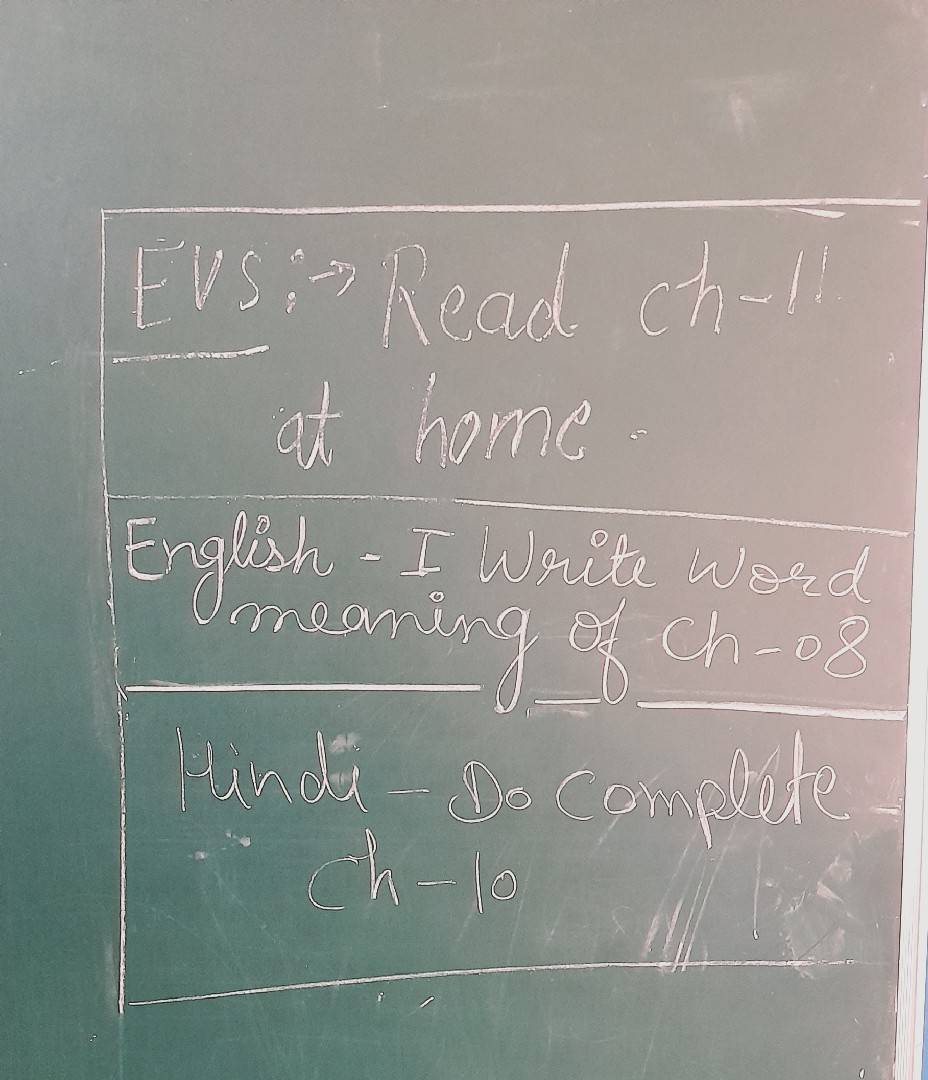 EVS:→ Read ch-11
at home.
English - I Write Word
meaning of Ch-08
Hindi - Do Complete
Ch-10